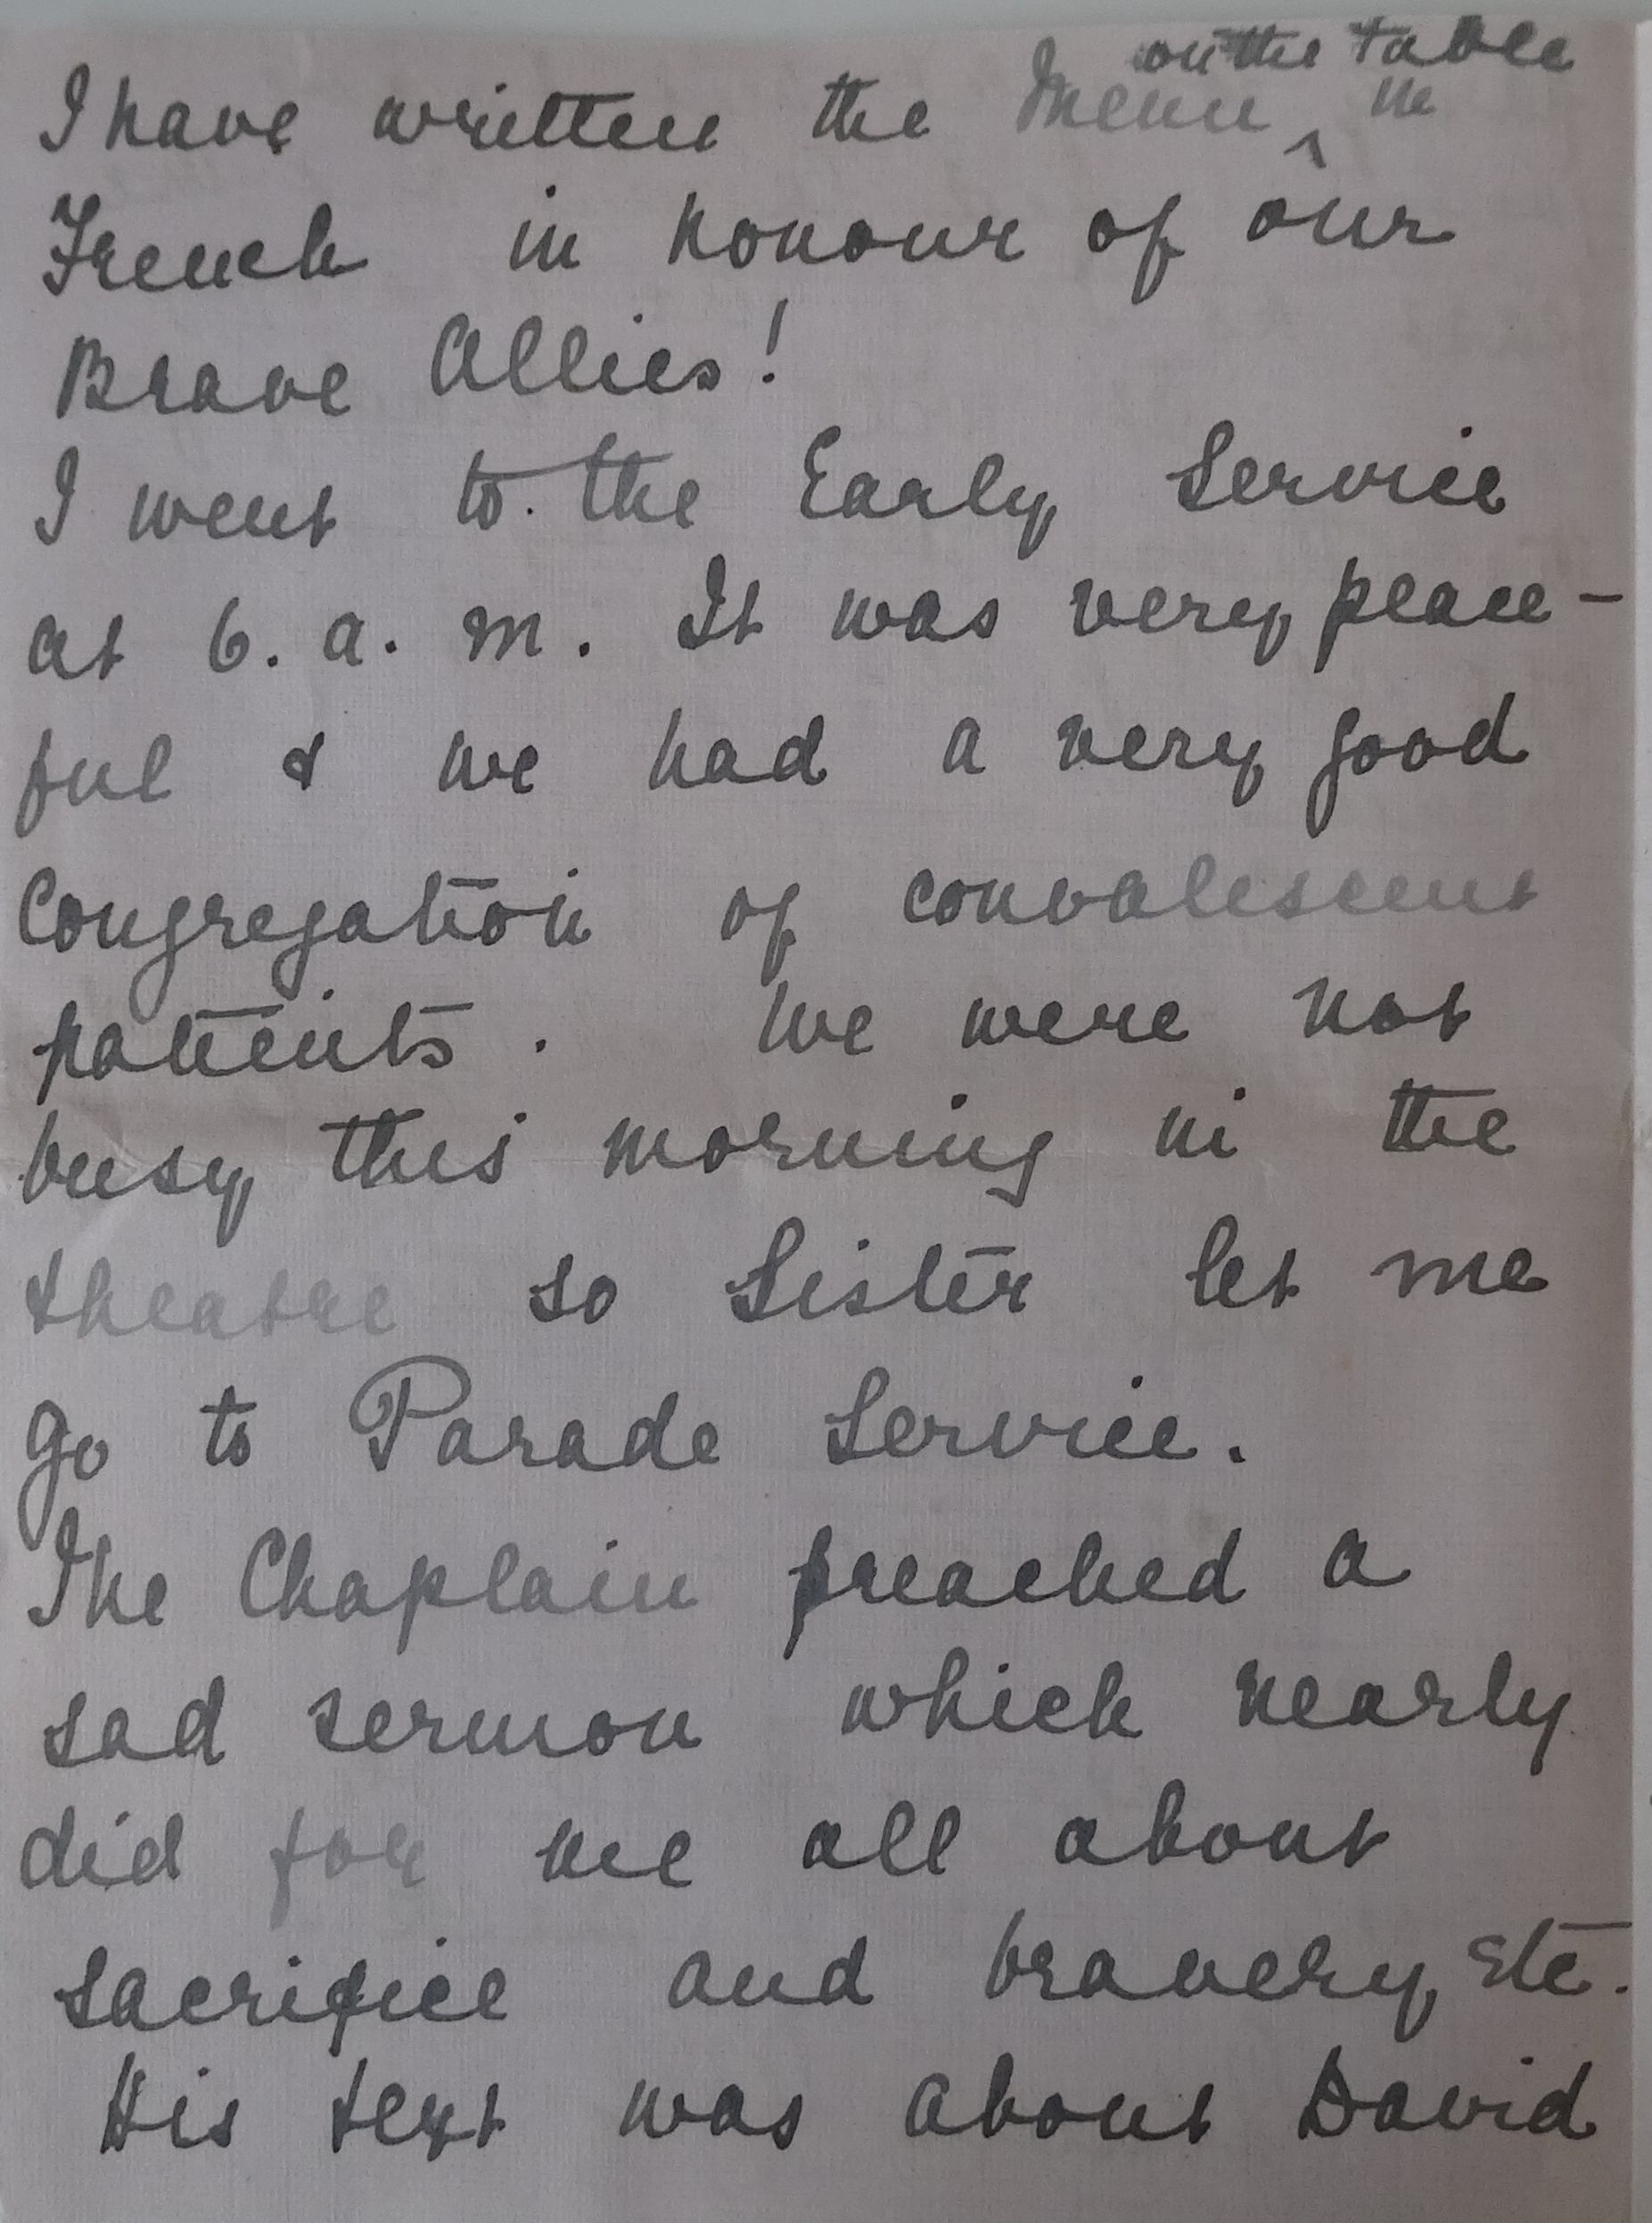 on the table
I have written the Menu ^ in
French in honour of our
Brave Allies!
I went to the Early Service
at 6. a. m. It was very peace-
ful & we had a very good
Congregation of convalescent
patients. We were not
busy this morning in the
theatre so Sister let me
go to Parade Service.
The Chaplain preached a
sad sermon which nearly
did for me all about
sacrifice and bravery etc.
His text was about David